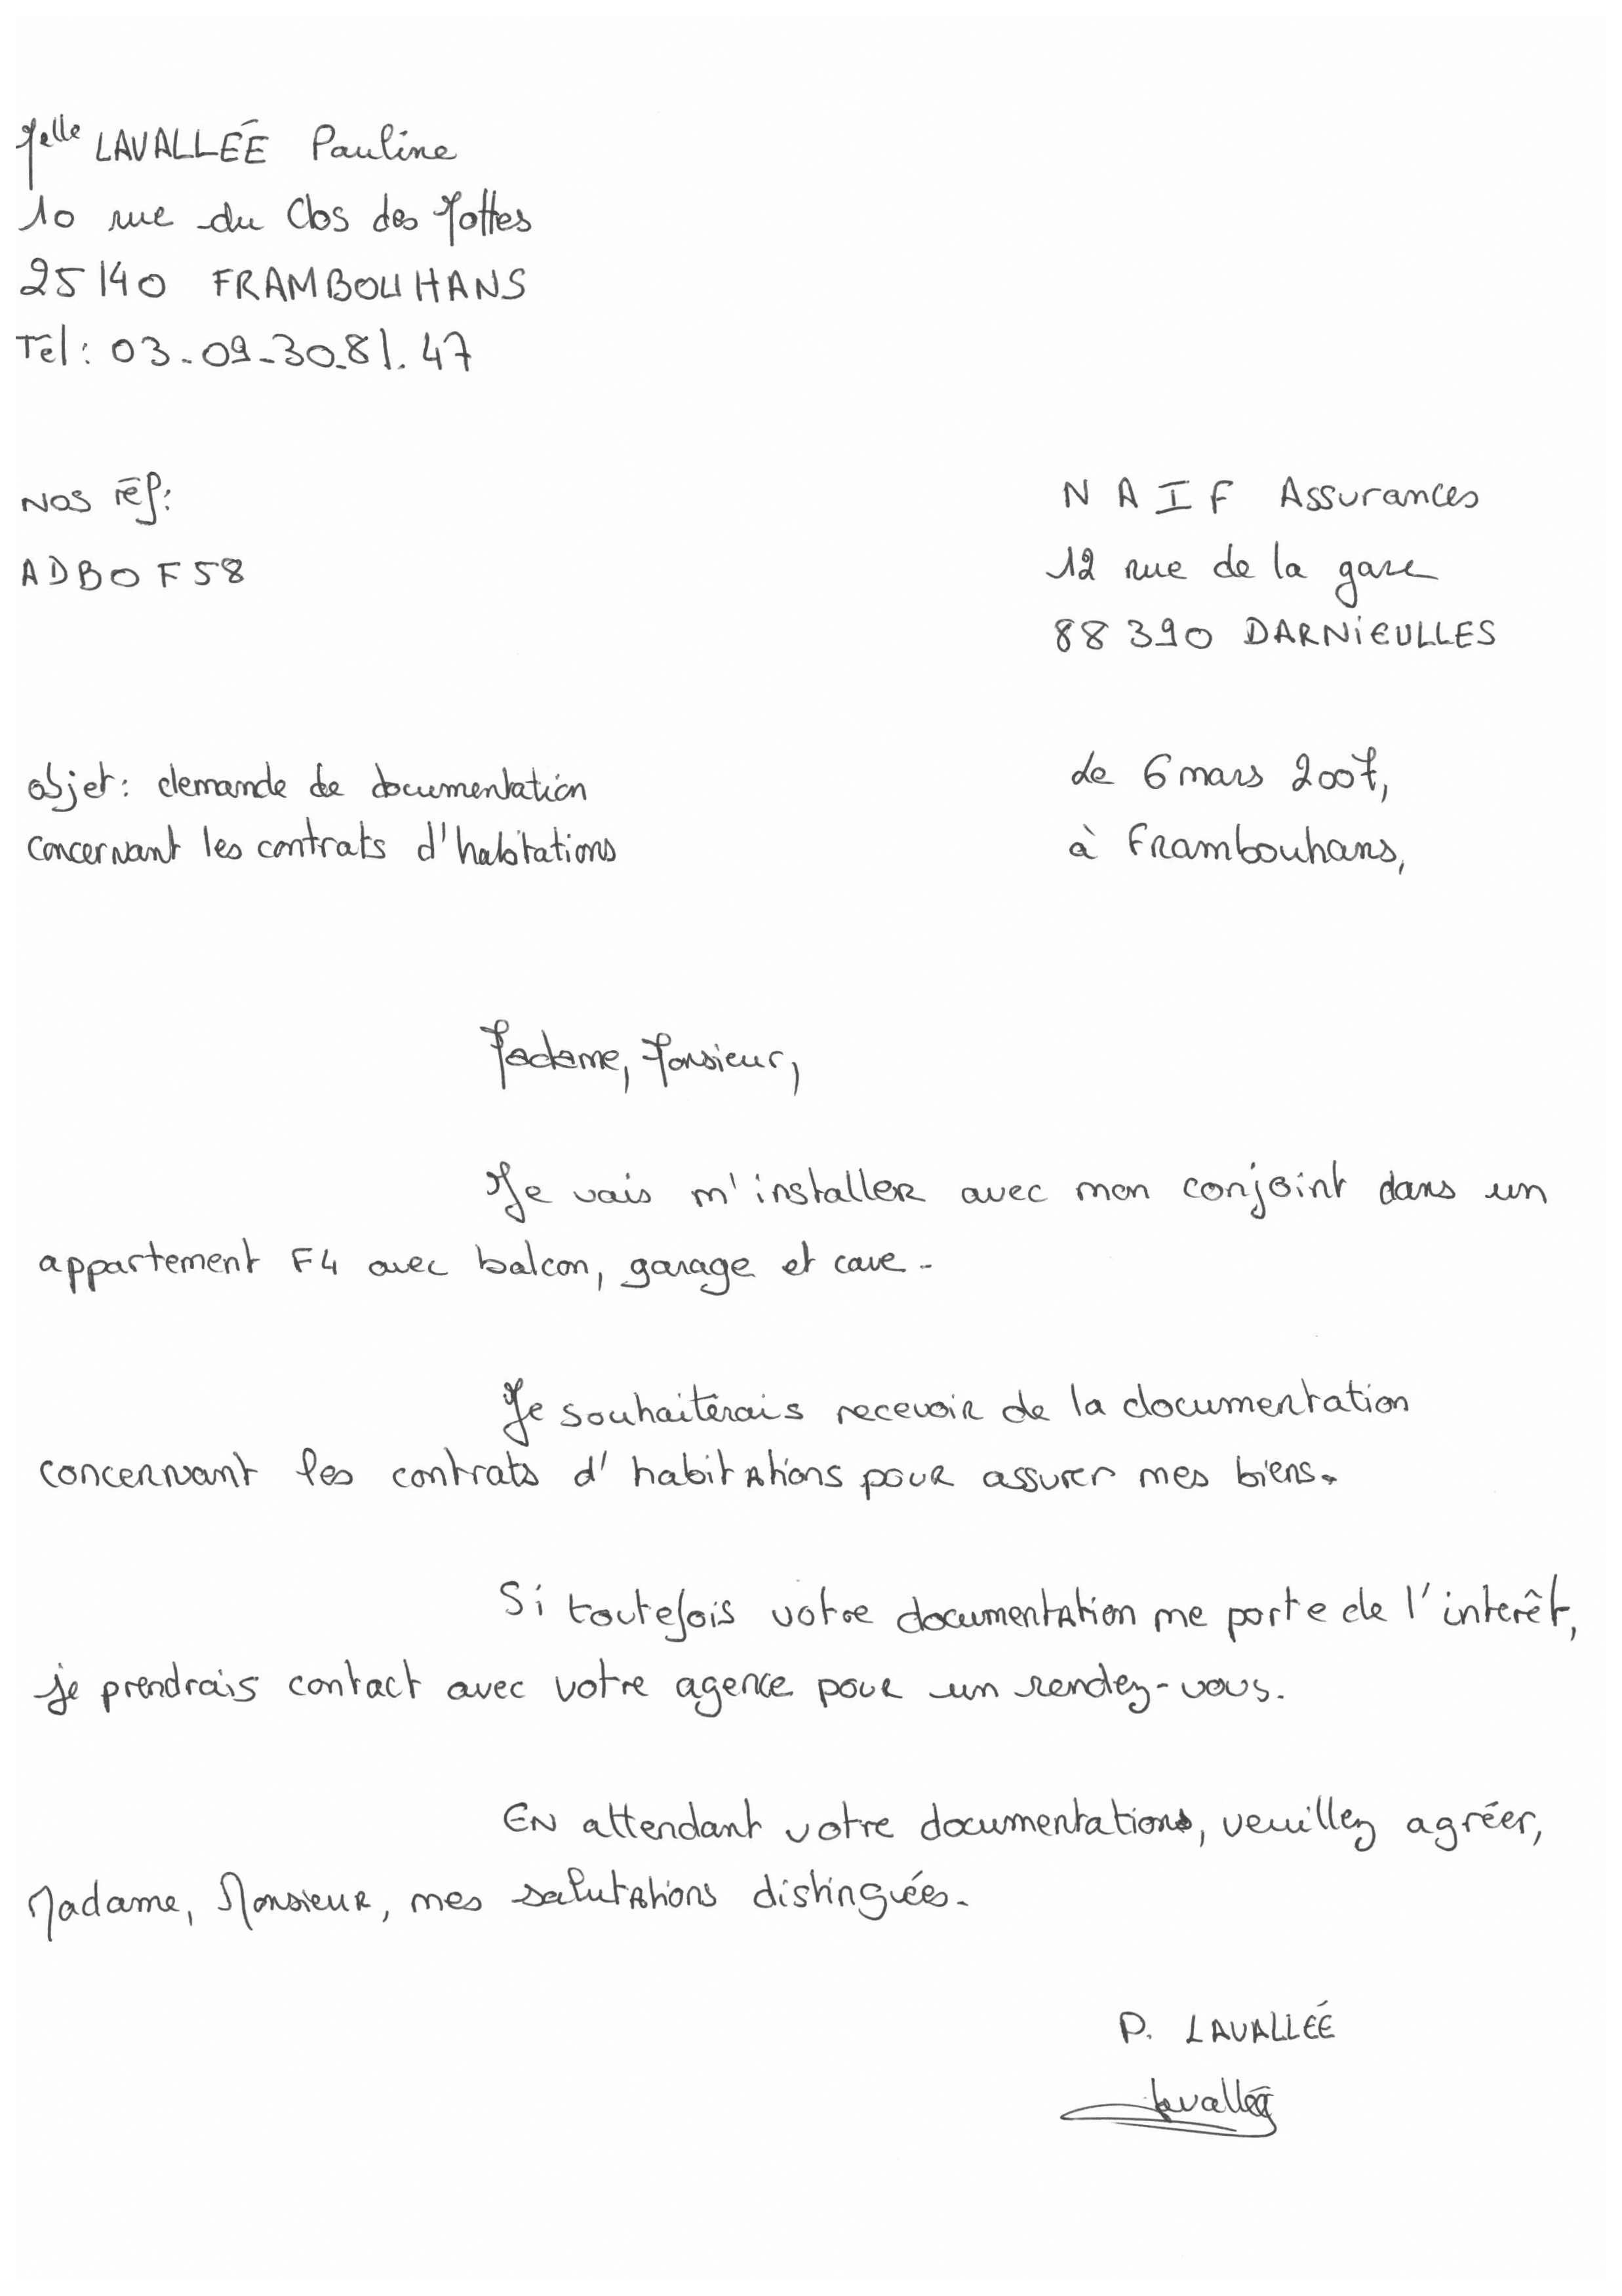 Melle LAVALLÉE Pauline
10 rue du Clos des Mottes
25140 FRAMBOUHANS
Tél : 03.09.30.81.47
Nos réf :
ADBOF58
NAIF Assurances
12 rue de la gare
88390 DARNIEULLES
objet : demande de documentation
concernant les contrats d'habitations
Le 6 mars 2007,
à Frambouhans,
Madame, Monsieur,
Je vais m'installer avec mon conjoint dans un
appartement F4 avec balcon, garage et cave.
Je souhaiterais recevoir de la documentation
concernant les contrats d'habitations pour assurer mes biens.
Si toutefois votre documentation me porte de l'interêt,
je prendrais contact avec votre agence pour un rendez-vous.
En attendant votre documentations, veuillez agréer,
Madame, Monsieur, mes salutations distinguées.
P. LAVALLÉE
Lavallée